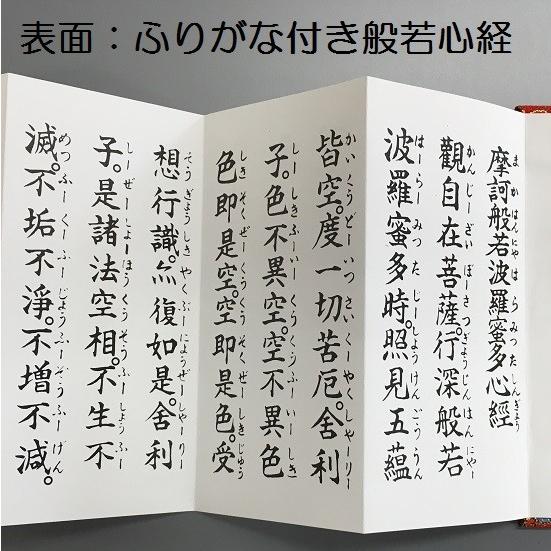 表面：ふりがな付き般若心経
摩訶般若波羅蜜多心經
まかはんにゃはらみつたしんぎょう
觀自在菩薩。行深般若
かんじーざいぼーさつぎょうじんはんにゃー
波羅蜜多時。照見五蘊
はーらーみつたじーしょうけんごーうん
皆空。度一切苦厄。舍利
かいくうどーいつさいくーやくしゃーりー
子。色不異空。空不異色
しーしきふーいーくうくうふーいーしき
色即是空。空即是色。受
しきそくぜーくうくうそくぜーしきじゅう
想行識。亦復如是。舍利
そうぎょうしきやくぶーにょうぜーしゃーりー
子。是諸法空相。不生不
しーぜーしょーほうくうそうふーしょうふー
滅。不垢不淨。不增不減。
めつふーくーふーじょうふーぞうふーげん